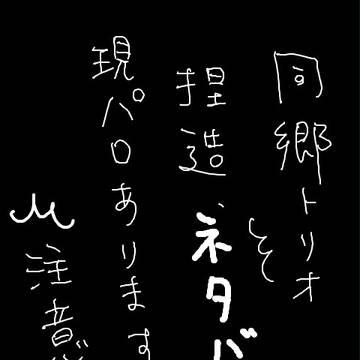 同郷トリオ
捏造、ネタバ
現パロあります
注意